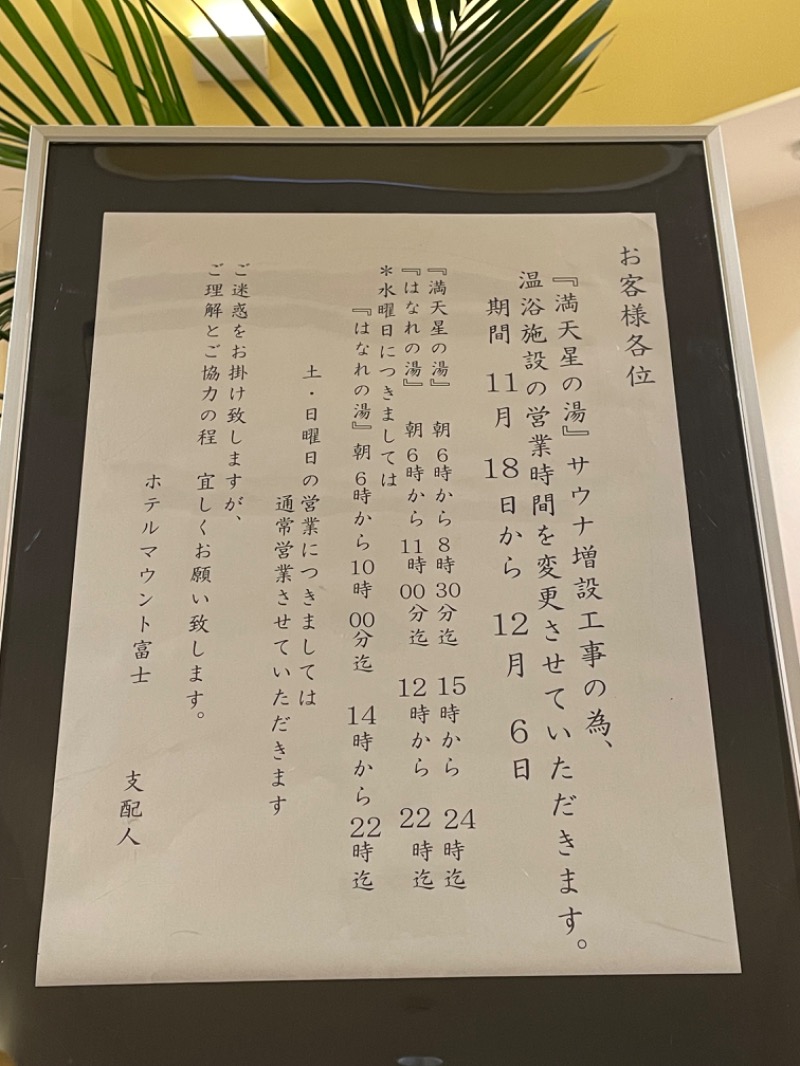 お客様各位
『満天星の湯』サウナ増設工事の為、
温浴施設の営業時間を変更させていただきます。
期間 11月 18日から 12月 6日
『満天星の湯』 朝6時から8時30分迄 15時から 24時迄
『はなれの湯』 朝6時から11時00分迄 12時から 22時迄
＊水曜日につきましては
『はなれの湯』朝6時から10時00分迄 14時から22時迄
土・日曜日の営業につきましては
通常営業させていただきます
ご迷惑をお掛け致しますが、
ご理解とご協力の程 宜しくお願い致します。
ホテルマウント富士 支配人